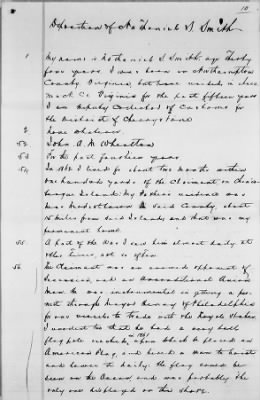 10
Deposition of Nathaniel S. Smith
1 My name is Nathaniel S Smith, age thirty
four years, I was born in Northampton
County Virginia, but have resided in
Co Virginia for the past fifteen years
I am Deputy Collector of Customs for
the District of Cherrystone
2 None whatever
52 John A. M. Whealton
53 For the past fourteen years
54 In 1861 I lived for about two months within
one hundred yards of the Claimant on
Island. My Father's residence was
in said County, about
15 miles from said Island, and that was my
permanent home.
55 A part of the War I saw him almost daily, at
other times, not so often
56 Mr Claimant was an avowed opponent of
Secession, and an unconditional Union
Man. He was instrumental in getting a per-
mit through of Philadelphia
for vessels to trade with the Loyal States
that he had a very tall
flag pole erected, upon which he placed an
American Flag, and hired a man to hoist
and lower it daily: the flag could be
seen on the Ocean and was probably the
only one displayed on the Shore.